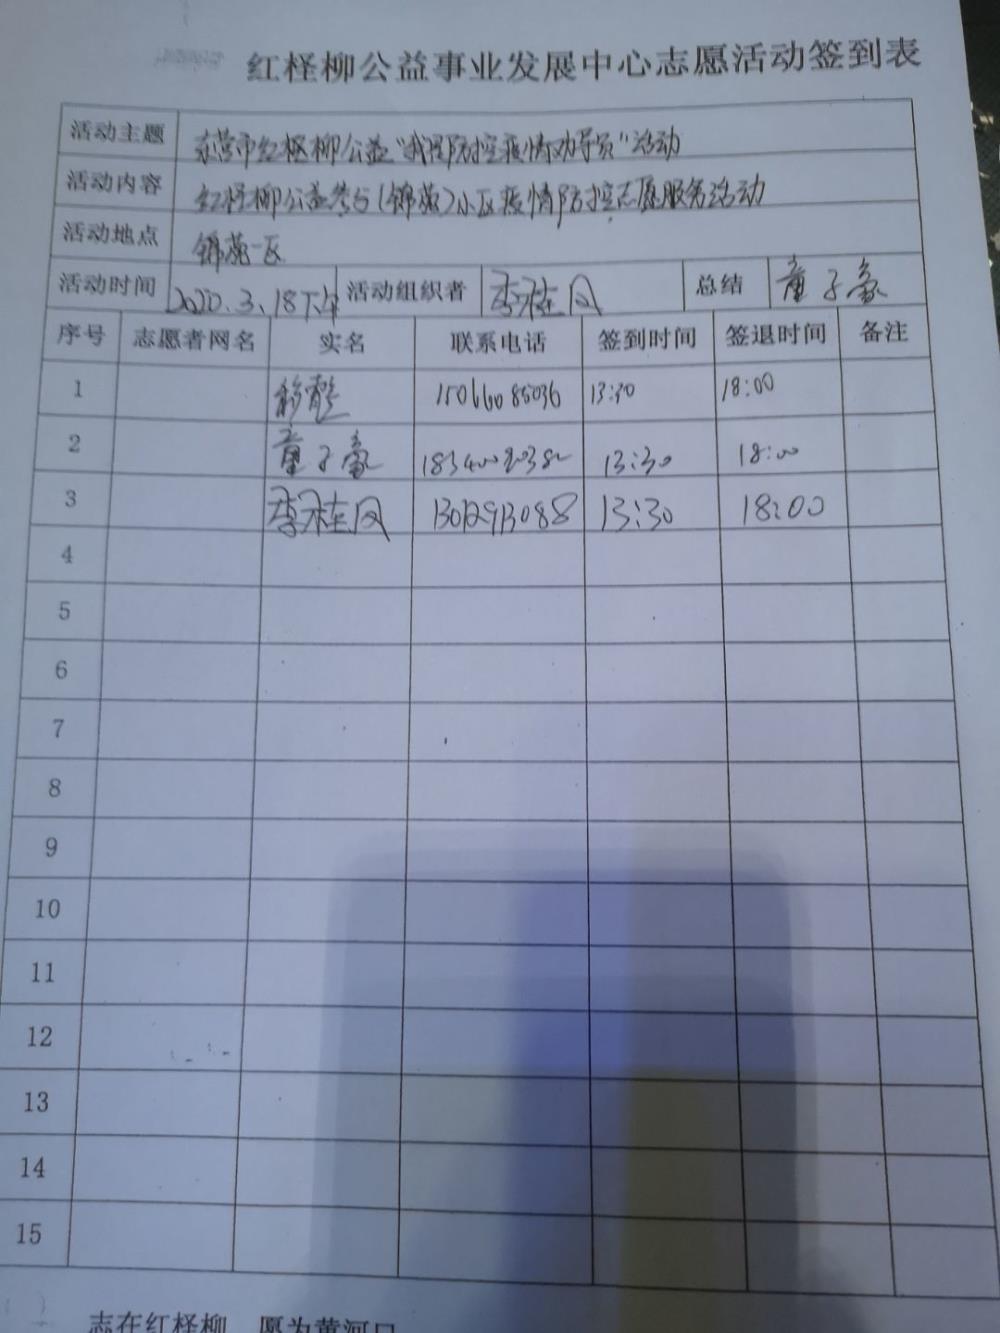 红柽柳公益事业发展中心志愿活动签到表
活动主题 东营市红柽柳公益"我们防控疫情劝导员"活动
活动内容 红柽柳公益参与(锦苑)小区疫情防控志愿服务活动
活动地点 锦苑一区
活动时间 2020.3.18下午 活动组织者 李桂凤 总结 童子豪
序号 志愿者网名 实名 联系电话 签到时间 签退时间 备注
1 15066085036 13:30 18:00
2 童子豪 13:30 18:00
3 李桂凤 13:30 18:00
4
5
6
7
8
9
10
11
12
13
14
15
志在红柽柳 愿为黄河口